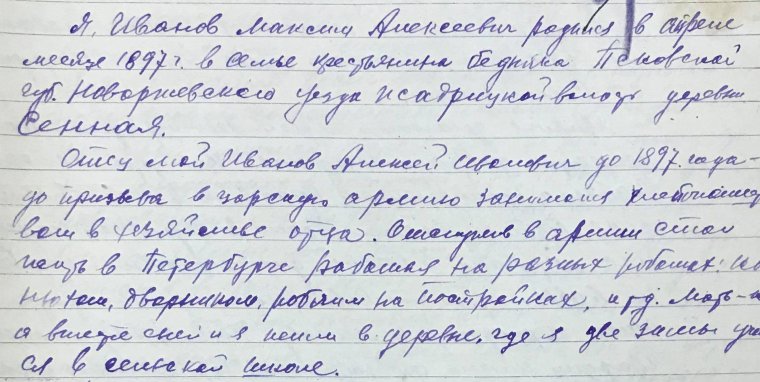 Я, Иванов Максим Алексеевич родился в апреле
месяце 1897 г. в семье крестьянина бедняка Псковской
губ. Новоржевского уезда Жадрицкой волость деревни
Сенная.
Отец мой Иванов Алексей Иванович до 1897 года-
до призыва в царскую армию занимался хлебопашес
вом в хозяйстве отца. Отслужив в армии стал
жить в Петербурге работая на разных работах: ко
нюхом, дворником, рабочим на постройках, и т.д. Мать-
а вместе с ней и я жили в деревне, где я две зимы учи
ся в сельской школе.